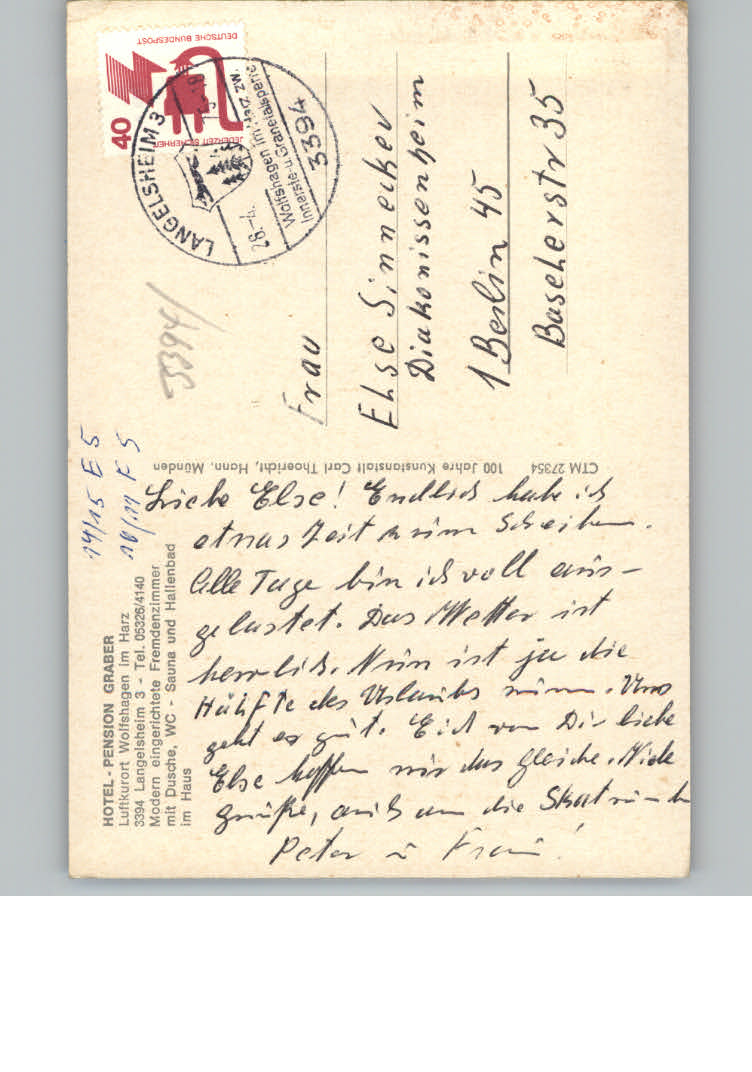 HOTEL - PENSION GRABER
Luftkurort Wolfshagen im Harz
3394 Langelsheim 3 - Tel. 05326/4140
Modern eingerichtete Fremdenzimmer
mit Dusche, WC - Sauna und Hallenbad
im Haus
14/15 E 5
10/11 F 5
Liebe Else! Endlich habe ich
etwas Zeit zum Schreiben.
Alle Tage bin ich voll aus-
gelastet. Das Wetter ist
herrlich. Nun ist ja die
Hälfte des Urlaubs rum. Uns
geht es gut. Eich von Dir liebe
Else hoffen wir das gleiche. Viele
Grüße, auch an die
Peter u Frau!
CTM 27354 100 Jahre Kunstanstalt Carl Thoericht, Hann. Münden
3394/
DEUTSCHE BUNDESPOST
JEDERZEIT SICHERHEIT
40
LANGELSHEIM 3
28.-4.
Wolfshagen im Harz zw.
Innerste-u. Granetalsperre
3394
Frau
Else Sinnecker
Diakonissenheim
1 Berlin 45
Baseherstr 35